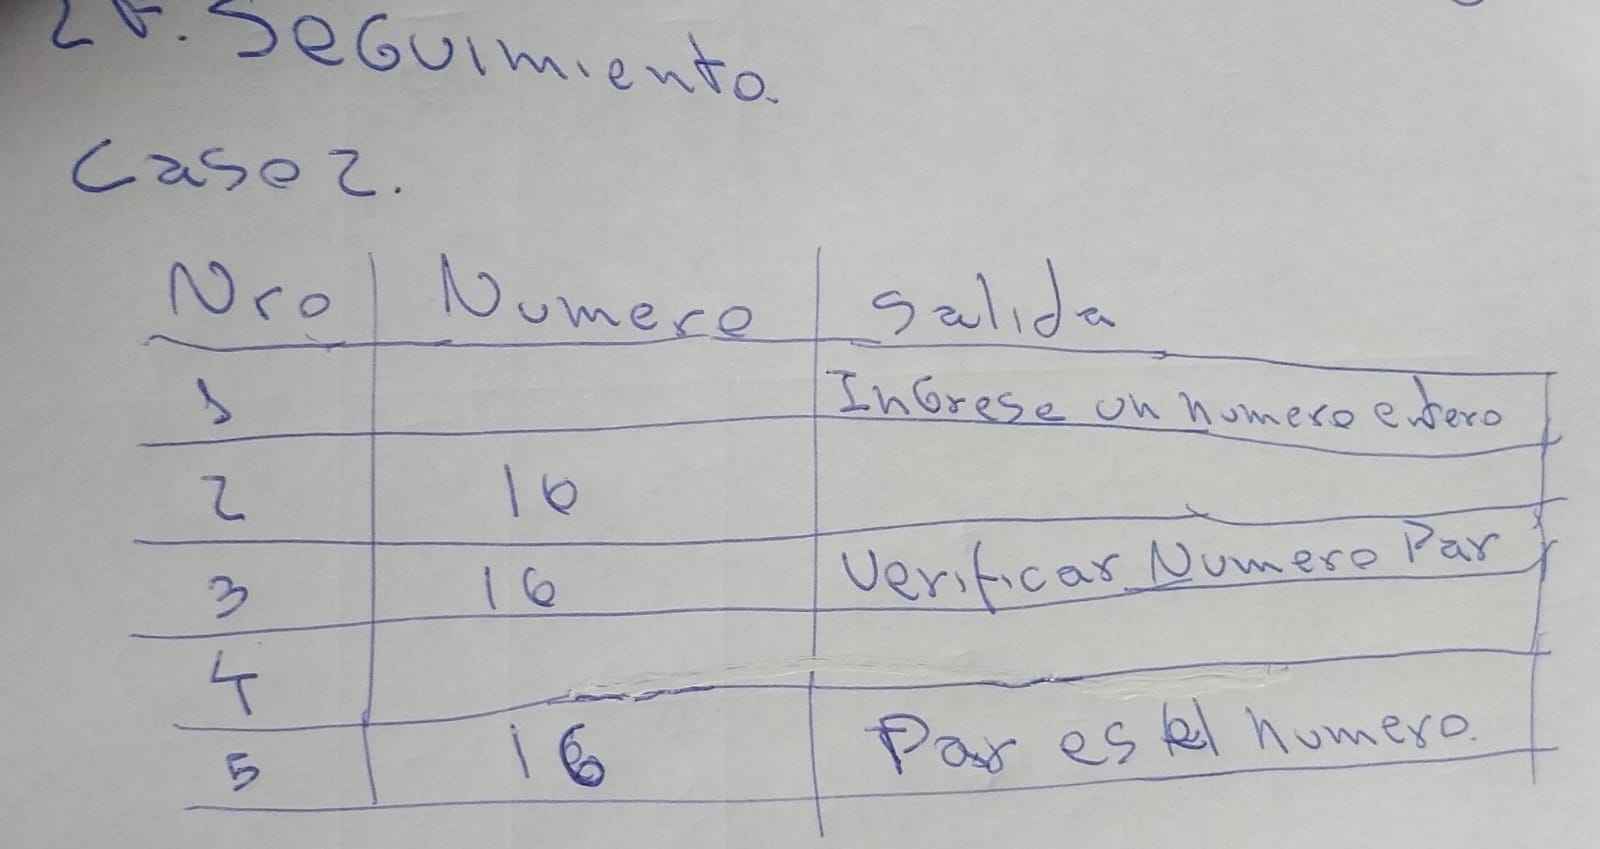 Seguimiento.
Caso 2.
Nro Numero Salida
1 Ingrese un numero entero
2 16
3 16 Verificar Numero Par
4
5 16 Par es el numero.